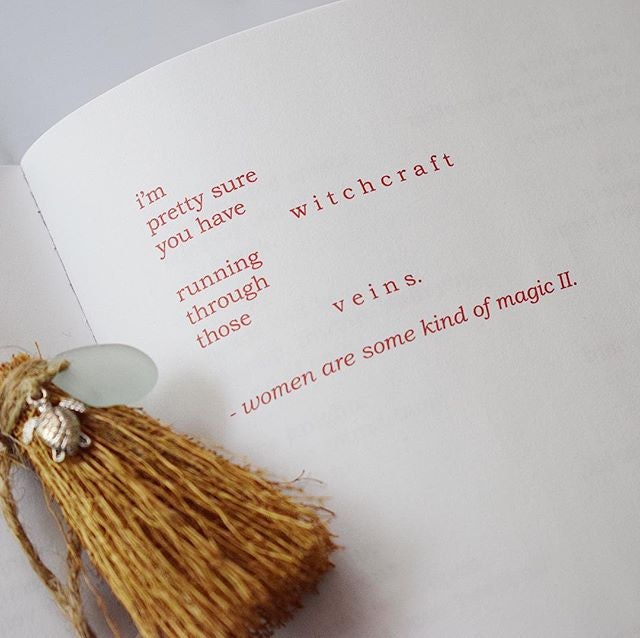 i'm
pretty sure
you have w i t c h c r a f t
running
through
those v e i n s.
- women are some kind of magic II.